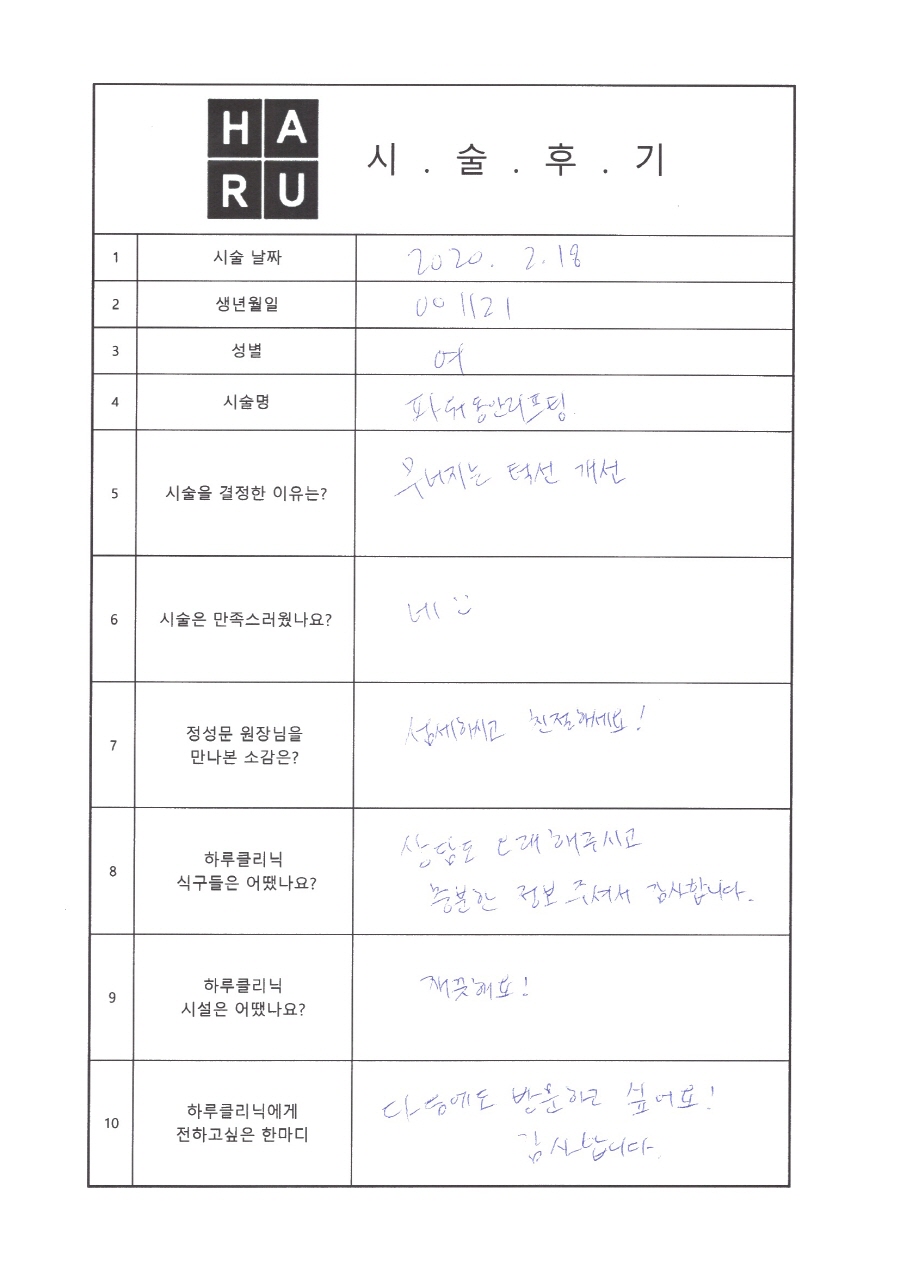 HA
RU
시.술.후.기
1 시술 날짜 2020. 2. 18
2 생년월일 001121
3 성별 여
4 시술명 파워동안리프팅.
5 시술을 결정한 이유는? 무너지는 턱선 개선
6 시술은 만족스러웠나요? 네
7 정성문 원장님을
만나본 소감은? 섬세하시고 친절하세요!
8 하루클리닉
식구들은 어땠나요? 상담도 오래 해주시고
충분한 정보 주셔서 감사합니다.
9 하루클리닉
시설은 어땠나요? 깨끗해요!
10 하루클리닉에게
전하고싶은 한마디 다음에도 방문하고 싶어요!
감사합니다.